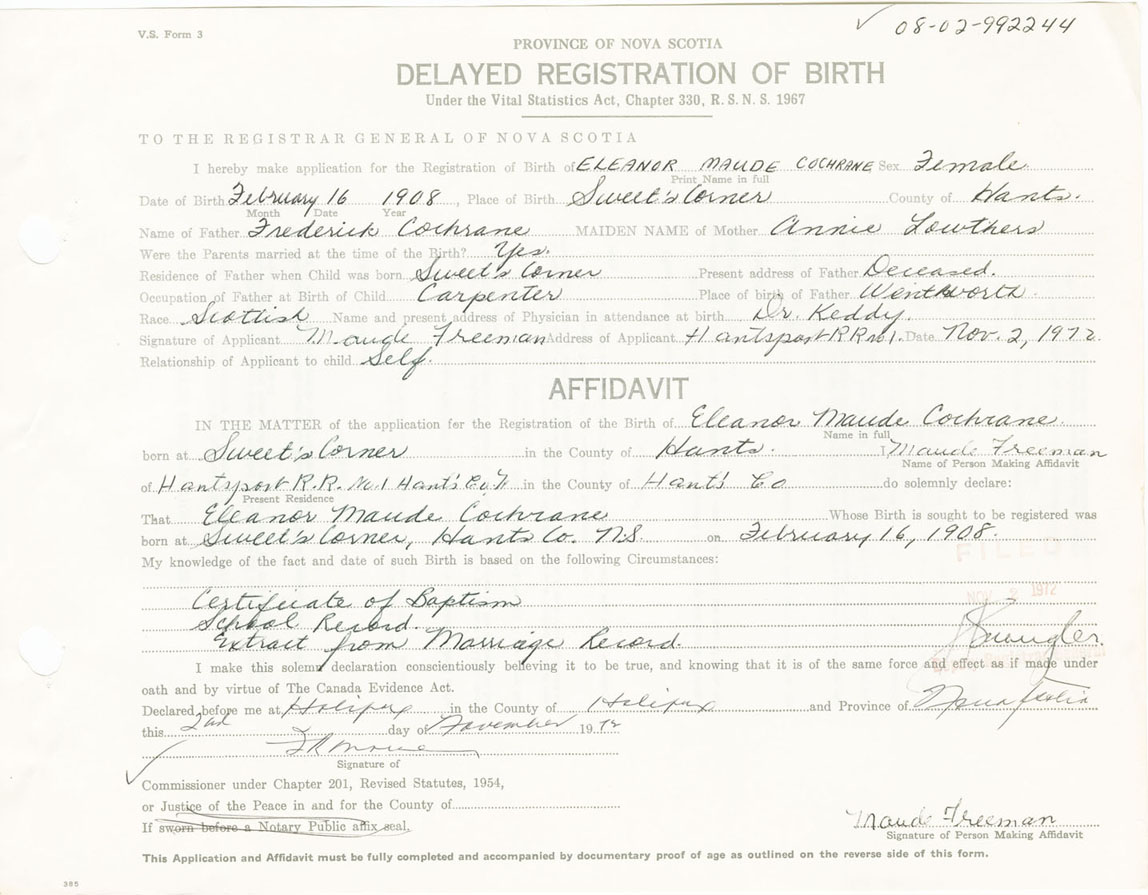 V.S. Form 3
✓ 08-02-992244
PROVINCE OF NOVA SCOTIA
DELAYED REGISTRATION OF BIRTH
Under the Vital Statistics Act, Chapter 330, R. S. N. S. 1967
TO THE REGISTRAR GENERAL OF NOVA SCOTIA
I hereby make application for the Registration of Birth of ELEANOR MAUDE COCHRANE Sex Female
Print Name in full
Date of Birth February 16 1908, Place of Birth Sweet's Corner County of Hants.
Month Date Year
Name of Father Frederick Cochrane MAIDEN NAME of Mother Annie Lowthers
Were the Parents married at the time of the Birth? Yes.
Residence of Father when Child was born Sweet's Corner Present address of Father Deceased.
Occupation of Father at Birth of Child Carpenter Place of birth of Father Wentworth.
Race Scottish Name and present address of Physician in attendance at birth Dr. Keddy.
Signature of Applicant Maude Freeman Address of Applicant Hantsport RR no1. Date Nov. 2, 1972.
Relationship of Applicant to child Self.
AFFIDAVIT
IN THE MATTER of the application for the Registration of the Birth of Eleanor Maude Cochrane
Name in full
born at Sweet's Corner in the County of Hants. I Maude Freeman
Name of Person Making Affidavit
of Hantsport R.R. No.1 Hant's Co. in the County of Hant's Co do solemnly declare:
Present Residence
That Eleanor Maude Cochrane Whose Birth is sought to be registered was
born at Sweet's Corner, Hants Co. N.S. on February 16, 1908.
My knowledge of the fact and date of such Birth is based on the following Circumstances:
FILED
NOV 2 1972
Certificate of Baptism
School Record.
Extract from Marriage Record.
I make this solemn declaration conscientiously believing it to be true, and knowing that it is of the same force and effect as if made under
oath and by virtue of The Canada Evidence Act.
Declared before me at Halifax in the County of Halifax and Province of Nova Scotia
this 2nd day of November 1972
Signature of
Commissioner under Chapter 201, Revised Statutes, 1954,
or Justice of the Peace in and for the County of
If sworn before a Notary Public affix seal.
Maude Freeman
Signature of Person Making Affidavit
This Application and Affidavit must be fully completed and accompanied by documentary proof of age as outlined on the reverse side of this form.
385